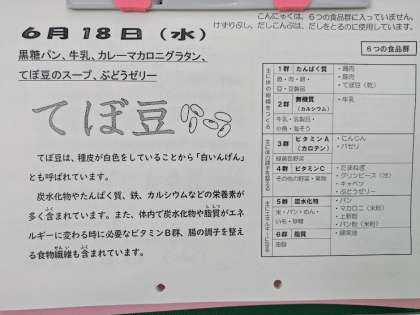 こんにゃくは、6つの食品群に入っていません。
けずりぶし、だしこんぶは、だしをとるのに使用しています。
6月18日(水)
黒糖パン、牛乳、カレーマカロニグラタン、
てぼ豆のスープ、ぶどうゼリー
てぼ豆
てぼ豆は、種皮が白色をしていることから「白いんげん」
とも呼ばれています。
炭水化物やたんぱく質、鉄、カルシウムなどの栄養素が
多く含まれています。また、体内で炭水化物や脂質がエネ
ルギーに変わる時に必要なビタミンB群、腸の調子を整え
る食物繊維も含まれています。
6つの食品群
1群 たんぱく質
魚・肉・卵・
豆・豆製品
・鶏肉
・豚肉
・てぼ豆(乾)
2群 無機質
(カルシウム)
牛乳・乳製品・
小魚・海そう
・牛乳
3群 ビタミンA
(カロテン)
緑黄色野菜
・にんじん
・パセリ
4群 ビタミンC
その他の野菜・果物
・たまねぎ
・グリンピース(冷)
・キャベツ
・ぶどうゼリー
5群 炭水化物
米・パン・めん・
いも・砂糖
・パン
・マカロニ(米粉)
・上新粉
・パン粉(米粉)
6群 脂質
油脂